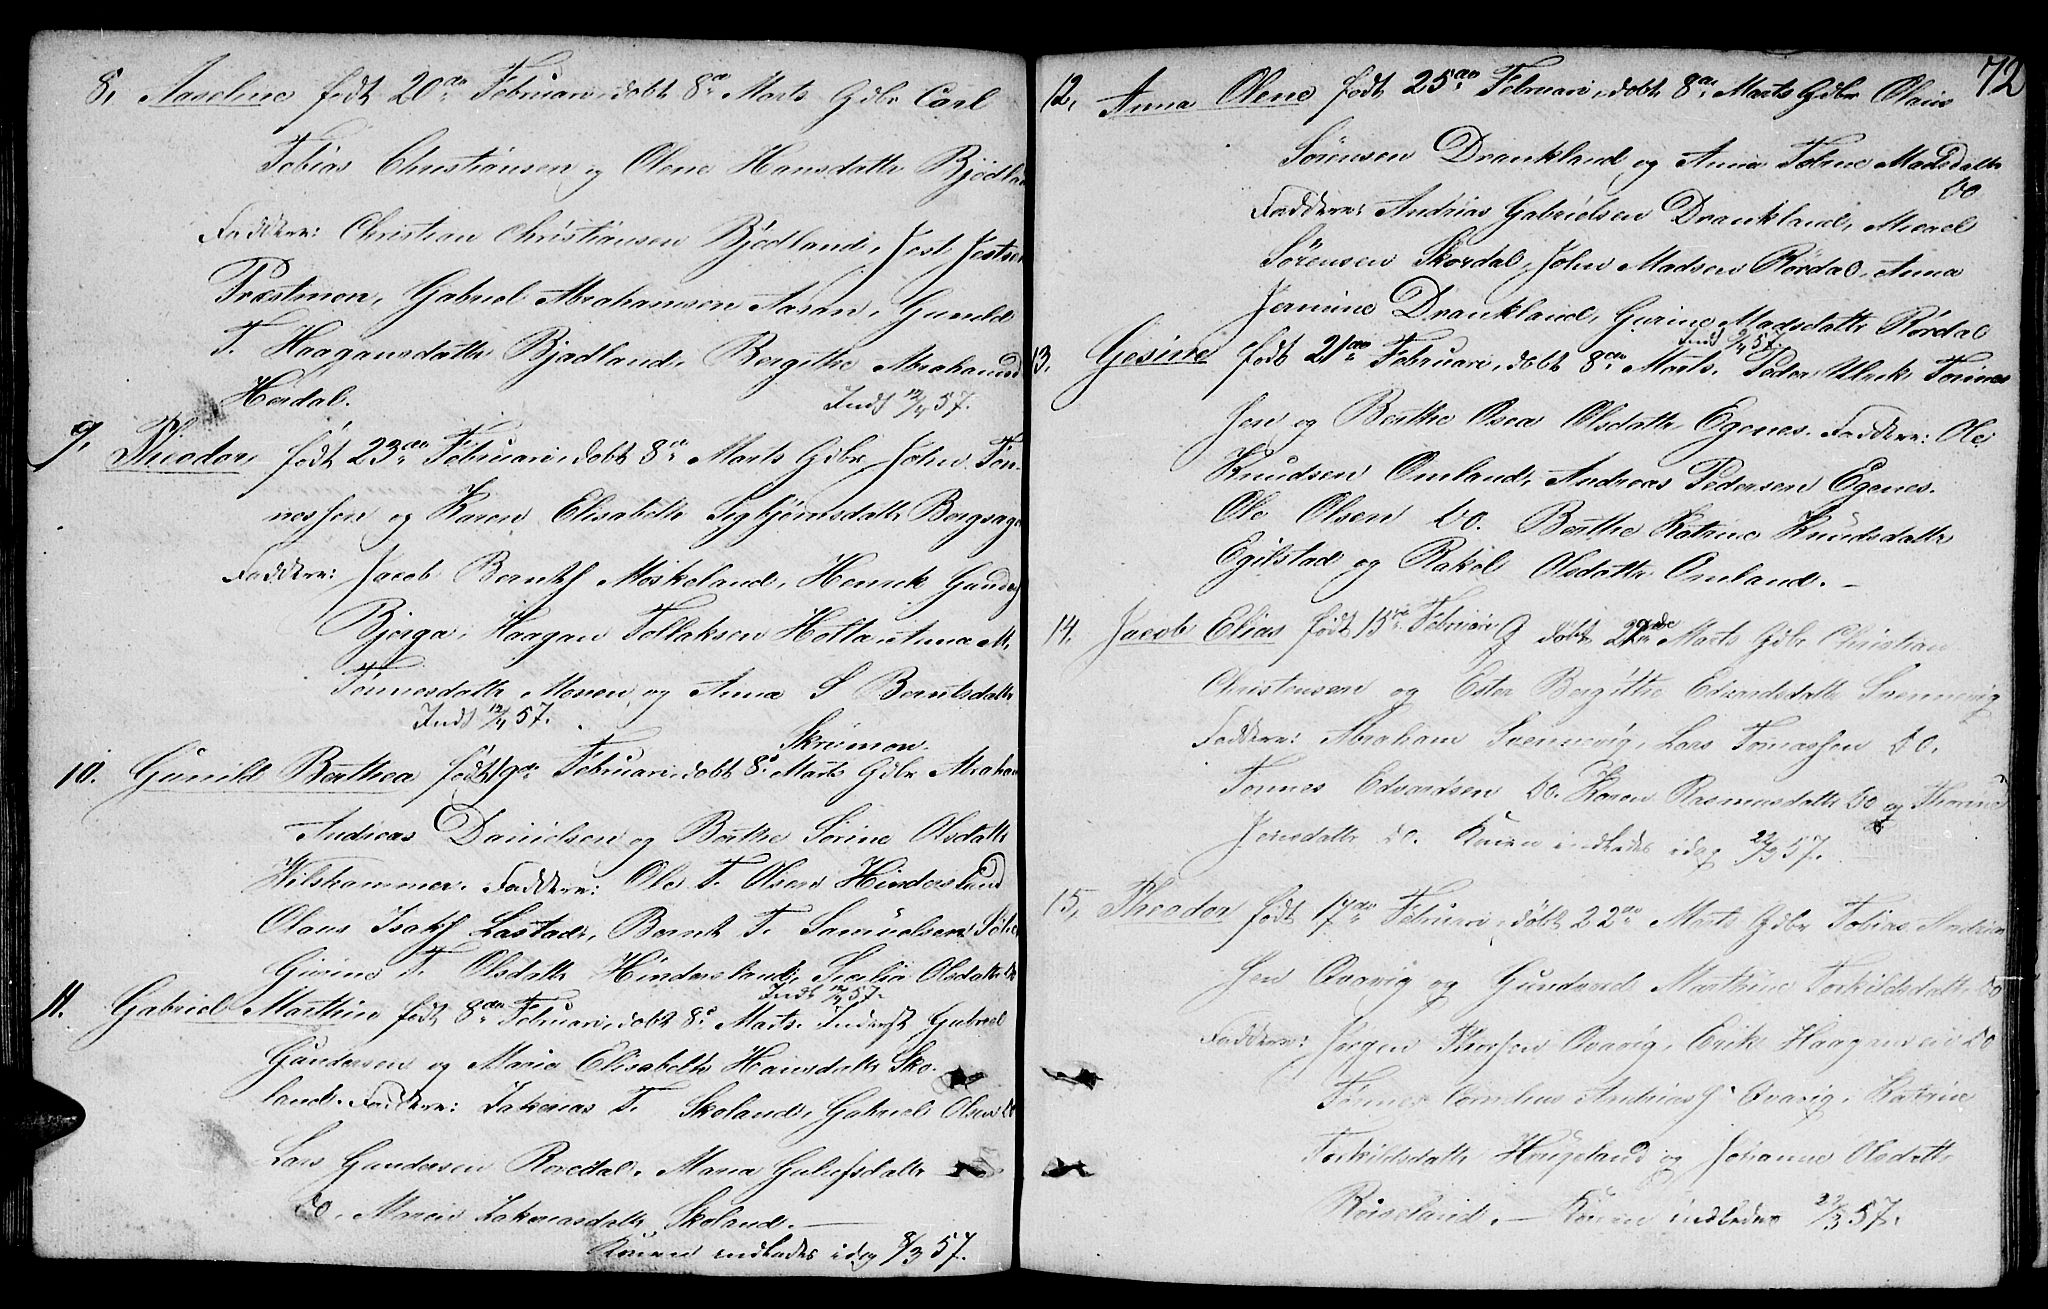 8, Aaseline født 20de Februari, døbt 8de Marts Gdbr Carl
Tobias Christiansen og Olene Hansdatter Bjødland
Faddere: Christian Christiansen Bjødland, Jost Jostsen
Præstmon, Gabriel Abrahamsen Aasan, Gunild
T. Haagansdatter Bjødland, Bergithe Abrahamsd
Hørdal. Indl 12/4 57.
9, Theodor, født 23de Februari, døbt 8de Marts Gdbr John Tøn-
nessen og Karen Elisabeth Bergsage
Faddere: Jacob Berntsen Moskeland, Henrik Gunders
Bjørga, Haagan Tollaksen Anna M.
Tønnesdatter Monen og Anna S Berntsdatter
Indl 12/4 57. Skreimon.
10. Gunild Berthea født 9de Februari, døbt 8de Marts Gdbr Abraham
Andreas Danielsen og Berthe Sørine Olsdatter
Wilshammer. Faddere: Ole T. Olsen Hindersland
Olaus Isaks Lastad, Bernt T. Samuelsen
Gurine T. Olsdatter Hindersland, Olsdatter do
Indl 12/4 57.
11. Gabriel Marthin født 8de Februari, døbt 8de Marts. Inderst Gabriel
Gundersen og Maria Elisabeth Hansdatter Sko-
land. Faddere: Zakarias T. Skoland, Gabriel Olsen do
Lars Gundersen Roredal, Maria
do, Maren Zakariasdatter Skoland. —
Konen indledes idag 8/3 57.
72
12, Anna Olene født 25de Februari, døbt 8de Marts Gdbr Olaus
Sørensen Drankland og Anna Tobine Madsdatter
do
Faddere: Andrias Gabrielsen Drankland, Micael
Sørensen Skordal, John Madsen Rørdal, Anna
Jermine Drankland, Gurine Madsdatter Rørdal
Indl 57.
13. Gesine født 21de Februari, døbt 8de Marts. Peder Ulrik Tønnes
sen og Berthe Osea Olsdatter Egenes. Faddere: Ole
Knudsen Omland, Andreas Pedersen Egenes.
Ole Olsen do. Berthe Katrine Knudsdatter
Egilstad og Rakel Olsdatter Omland. —
14. Jacob Elias født 15de Februari døbt 22de Marts Gdbr Christian
Christensen og Ester Bergitte Edvardsdatter Svennevig
Faddere: Abraham Svennevig, Lars Tomassen do.
Tønnes Edvardsen do. Karen Rasmusdatter do og Thorine
Jensdatter do. Konen indledes idag 22/3 57.
15, Theodor født 17de Februari, døbt 22de Marts Gdbr Tobias Andrias
sen Qvavig og Gunvord Marthine Torkildsdatter do
Faddere: Jørgen Thorsen Qvavig, Erik Haagansen do
Tønnes Cornelius Andriass Qvavig, Katrine
Torkildsdatter Hougeland og Johanne Olsdatter
Røiseland. — Konen indledes 22/3 57.